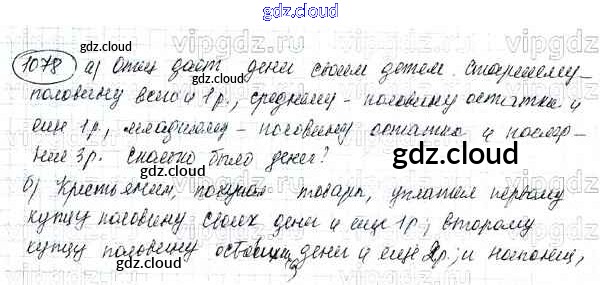 gdz.cloud
1078 а) Отец даёт дени своим детям. Старшему-
gdz.cloud
половину всего и 1р., среднему - половину остатка и
gdz.cloud
еще 1р., младшему - половину остатка и послед-
ние 3р. Сколько было денег?
gdz.cloud
б) Крестьянин, покупая товары, уплатил первому
gdz.cloud
купцу половину своих денег и еще 1р; второму
купцу половину оставших денег и ещё 2р.; и наконец,
gdz.cloud